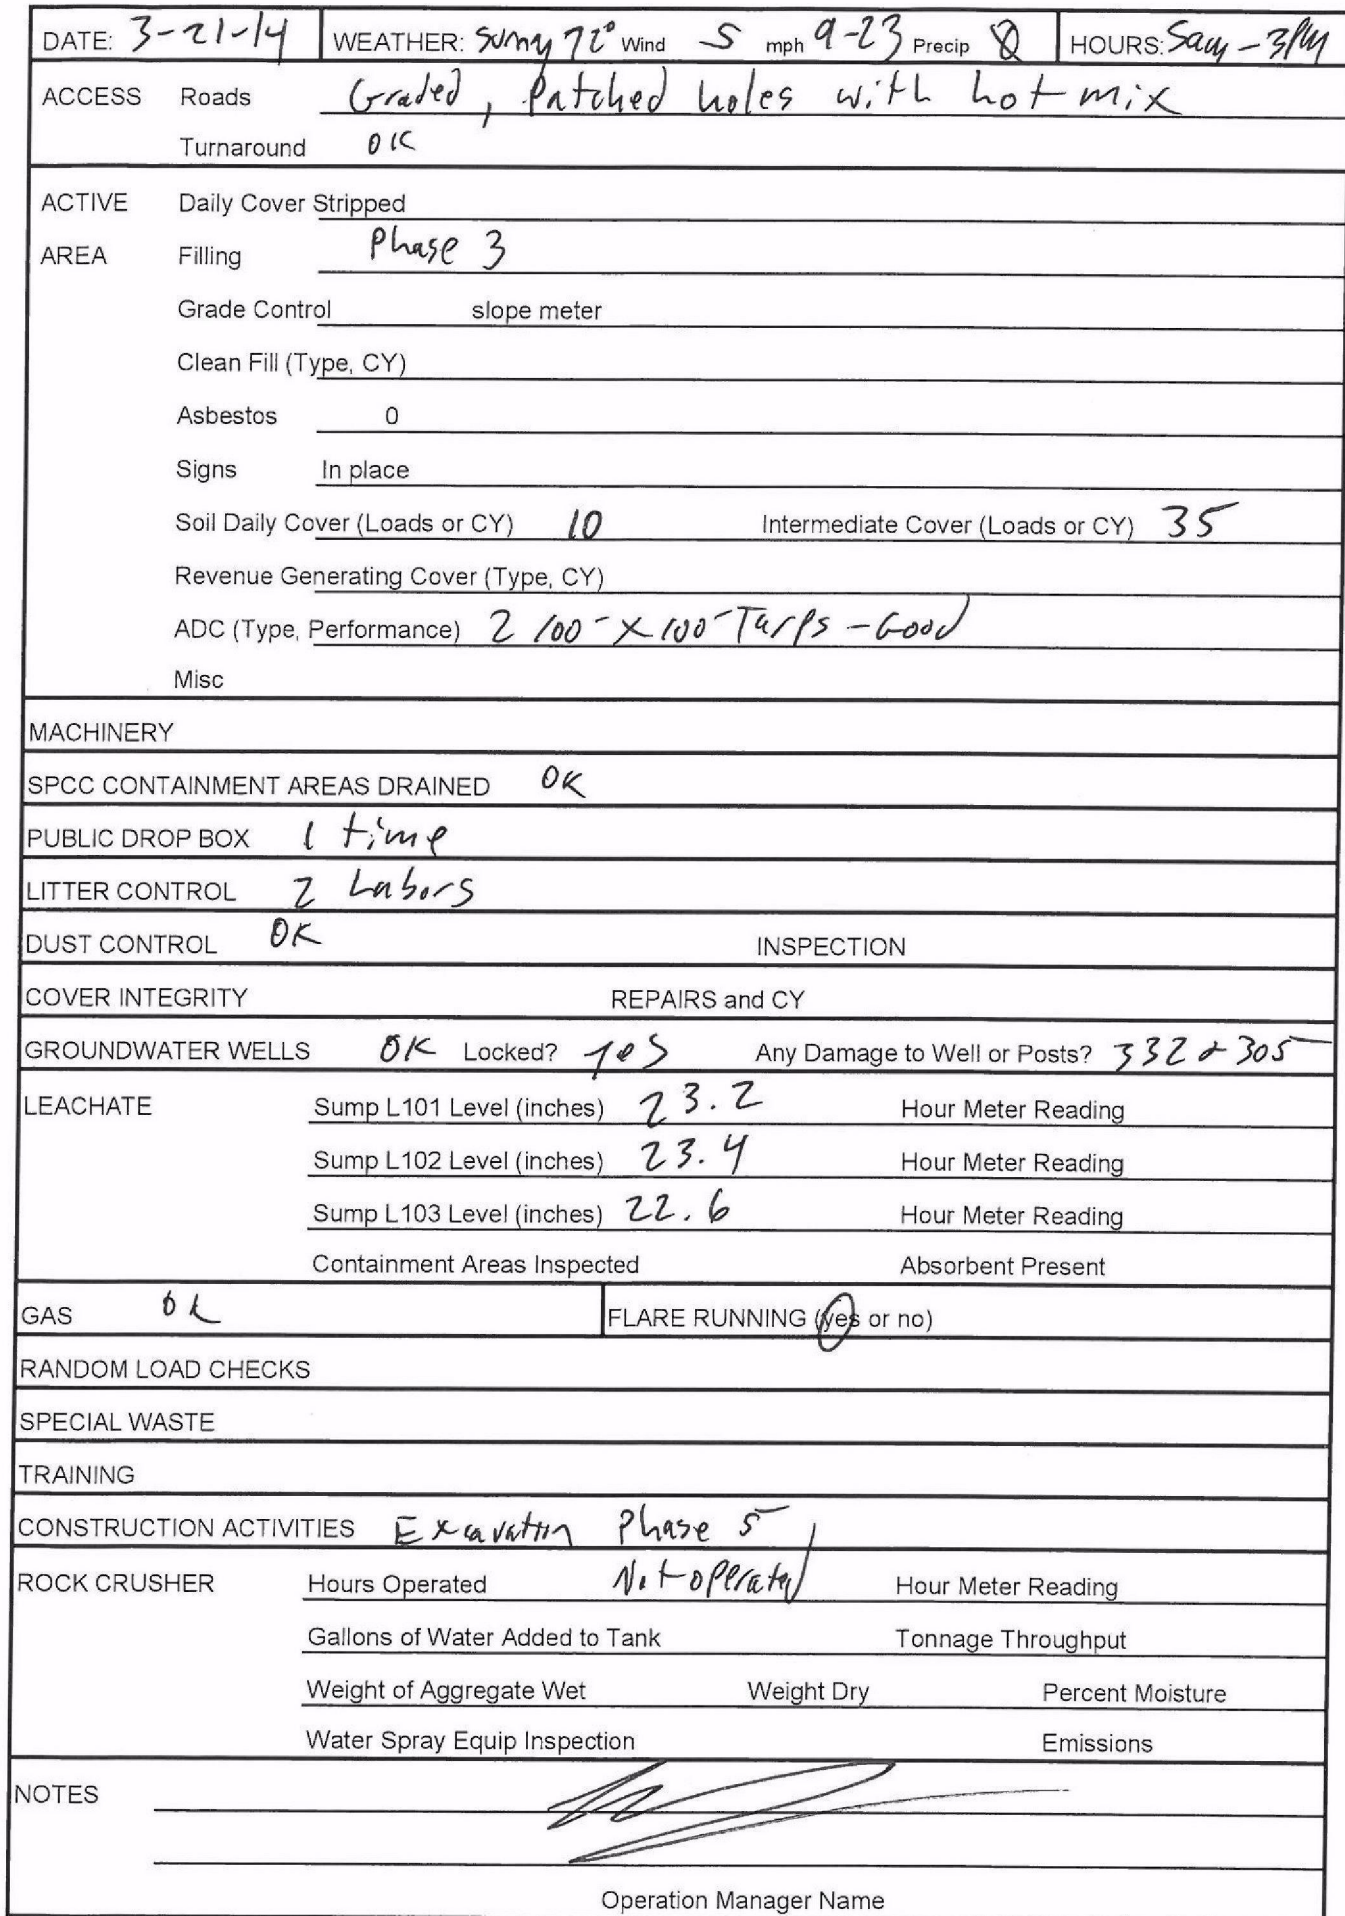 DATE: 3-21-14 WEATHER: Sunny 72° Wind S mph 9-23 Precip 0 HOURS: 5am - 3PM
ACCESS Roads Graded, Patched holes with hot mix
Turnaround OK
ACTIVE Daily Cover Stripped
AREA Filling Phase 3
Grade Control slope meter
Clean Fill (Type, CY)
Asbestos 0
Signs In place
Soil Daily Cover (Loads or CY) 10 Intermediate Cover (Loads or CY) 35
Revenue Generating Cover (Type, CY)
ADC (Type, Performance) 2 100' X 100' Tarps - Good
Misc
MACHINERY
SPCC CONTAINMENT AREAS DRAINED OK
PUBLIC DROP BOX 1 time
LITTER CONTROL 2 Labors
DUST CONTROL OK INSPECTION
COVER INTEGRITY REPAIRS and CY
GROUNDWATER WELLS OK Locked? yes Any Damage to Well or Posts? 332 & 305
LEACHATE Sump L101 Level (inches) 23.2 Hour Meter Reading
Sump L102 Level (inches) 23.4 Hour Meter Reading
Sump L103 Level (inches) 22.6 Hour Meter Reading
Containment Areas Inspected Absorbent Present
GAS OK FLARE RUNNING (yes or no)
RANDOM LOAD CHECKS
SPECIAL WASTE
TRAINING
CONSTRUCTION ACTIVITIES Excavation Phase 5
ROCK CRUSHER Hours Operated Not operated Hour Meter Reading
Gallons of Water Added to Tank Tonnage Throughput
Weight of Aggregate Wet Weight Dry Percent Moisture
Water Spray Equip Inspection Emissions
NOTES
Operation Manager Name